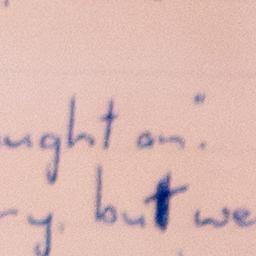 ught on".
y, but we